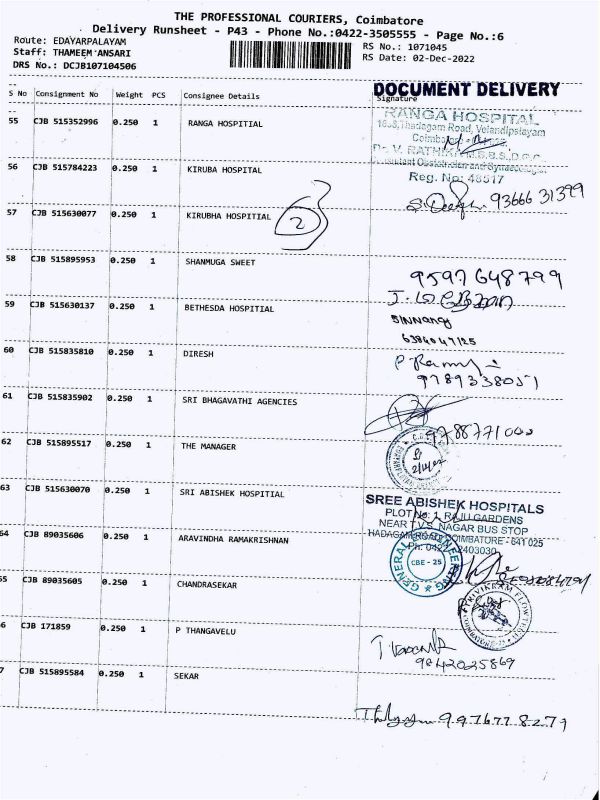 THE PROFESSIONAL COURIERS, Coimbatore
Delivery Runsheet - P43 - Phone No.:0422-3505555 - Page No.:6
Route: EDAYARPALAYAM
RS No.: 1071045
Staff: THAMEEM ANSARI
RS Date: 02-Dec-2022
DRS No.: DCJB107104506
DOCUMENT DELIVERY
S No Consignment No Weight PCS Consignee Details Signature
55 CJB 515352996 0.250 1 RANGA HOSPITIAL
RANGA HOSPITAL
Thadagam Road,
Reg. No: 48517
56 CJB 515784223 0.250 1 KIRUBA HOSPITAL
93666 31399
57 CJB 515630077 0.250 1 KIRUBHA HOSPITIAL
2
58 CJB 515895953 0.250 1 SHANMUGA SWEET
9597648799
59 CJB 515630137 0.250 1 BETHESDA HOSPITIAL
60 CJB 515835810 0.250 1 DIRESH
61 CJB 515835902 0.250 1 SRI BHAGAVATHI AGENCIES
62 CJB 515895517 0.250 1 THE MANAGER
63 CJB 515630070 0.250 1 SRI ABISHEK HOSPITIAL
SREE ABISHEK HOSPITALS
PLOT No: 1, RAJU GARDENS
NEAR T.V.S. NAGAR BUS STOP
HADAGAM ROAD, COIMBATORE - 641 025
64 CJB 89035606 0.250 1 ARAVINDHA RAMAKRISHNAN
Ph: 0422 2403030
GENERAL
CBE - 25
55 CJB 89035605 0.250 1 CHANDRASEKAR
6 CJB 171859 0.250 1 P THANGAVELU
9842025869
7 CJB 515895584 0.250 1 SEKAR